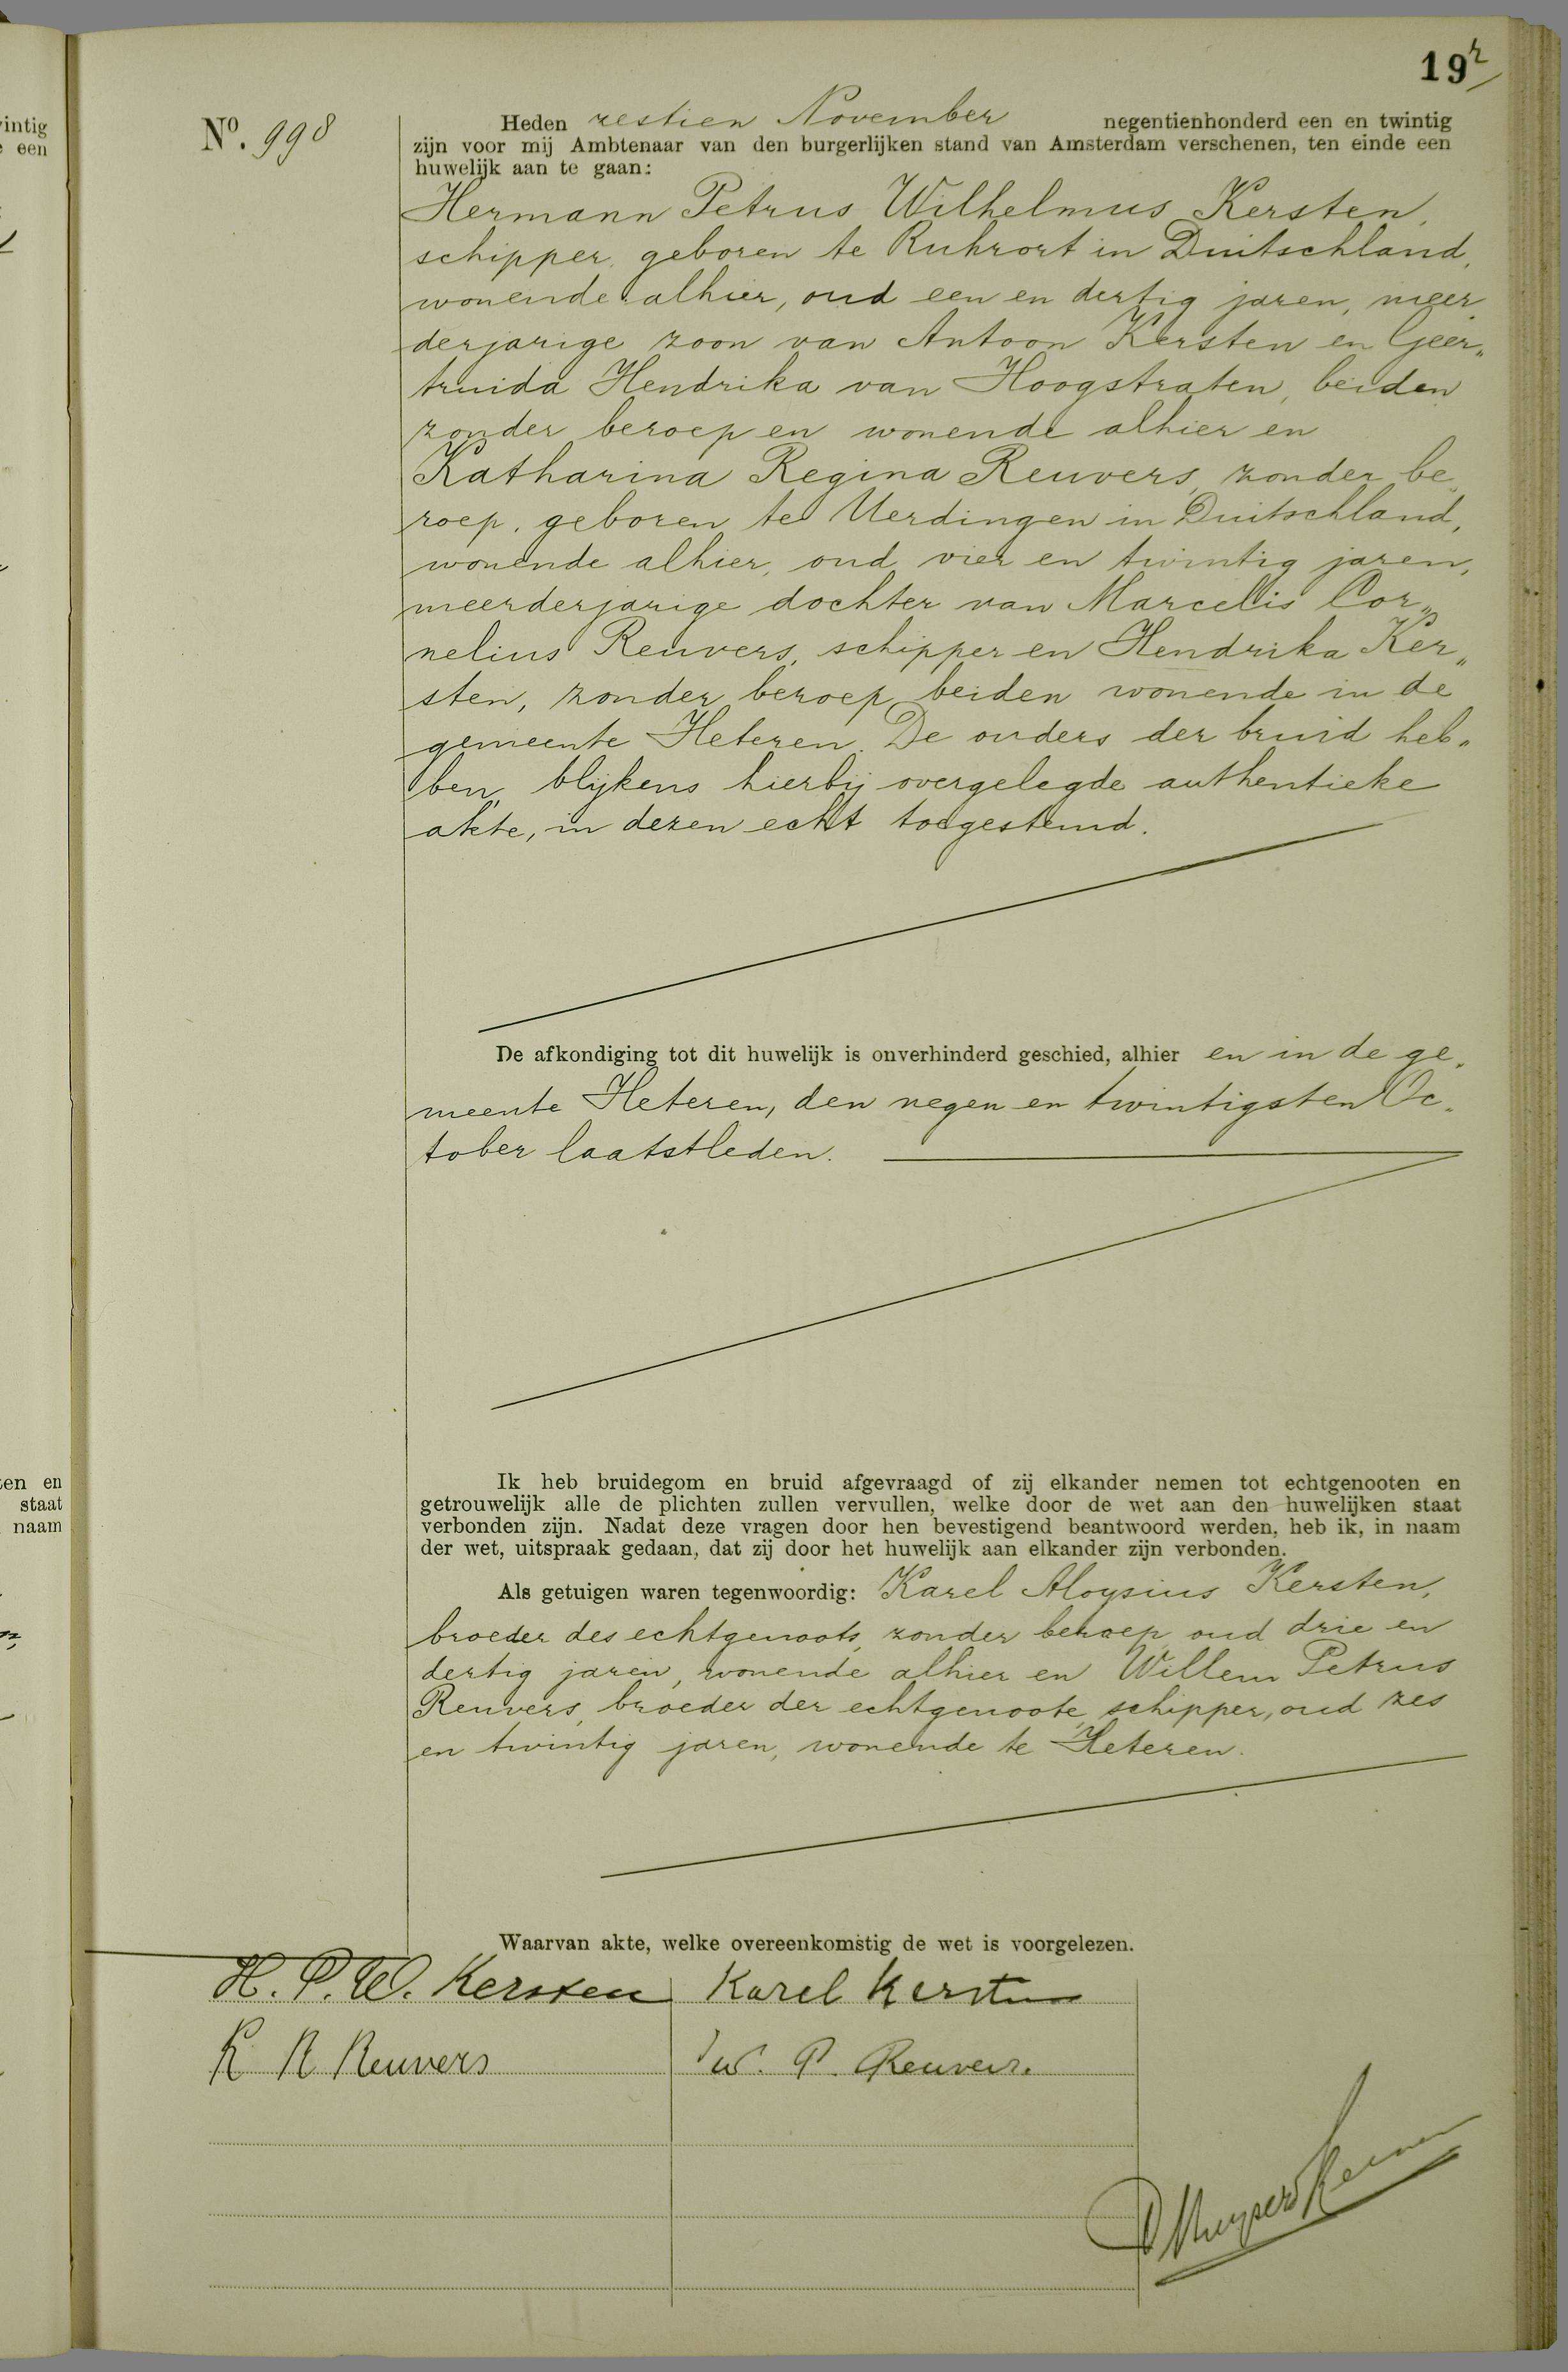 19r
No. 998
Heden zestien November negentienhonderd een en twintig
zijn voor mij Ambtenaar van den burgerlijken stand van Amsterdam verschenen, ten einde een
huwelijk aan te gaan:
Hermann Petrus Wilhelmus Kersten,
schipper, geboren te Ruhrort in Duitschland,
wonende alhier, oud een en dertig jaren, meer„
derjarige zoon van Antoon Kersten en Geer„
truida Hendrika van Hoogstraten, beiden
zonder beroep en wonende alhier en
Katharina Regina Reuvers, zonder be„
roep, geboren te Uerdingen in Duitschland,
wonende alhier, oud vier en twintig jaren,
meerderjarige dochter van Marcelis Cor„
nelius Reuvers, schipper en Hendrika Ker„
sten, zonder beroep, beiden wonende in de
gemeente Heteren. De ouders der bruid heb„
ben, blijkens hierbij overgelegde authentieke
akte, in dezen echt toegestemd.
De afkondiging tot dit huwelijk is onverhinderd geschied, alhier en in de ge„
meente Heteren, den negen en twintigsten Oc„
tober laatstleden.
Ik heb bruidegom en bruid afgevraagd of zij elkander nemen tot echtgenooten en
getrouwelijk alle de plichten zullen vervullen, welke door de wet aan den huwelijken staat
verbonden zijn. Nadat deze vragen door hen bevestigend beantwoord werden, heb ik, in naam
der wet, uitspraak gedaan, dat zij door het huwelijk aan elkander zijn verbonden.
Als getuigen waren tegenwoordig: Karel Aloysius Kersten,
broeder des echtgenoots, zonder beroep, oud drie en
dertig jaren, wonende alhier en Willem Petrus
Reuvers, broeder der echtgenoote, schipper, oud zes
en twintig jaren, wonende te Heteren.
Waarvan akte, welke overeenkomstig de wet is voorgelezen.
H. P. W. Kersten Karel Kersten
K R Reuvers W. P. Reuvers.
intig
een
ten en
staat
naam